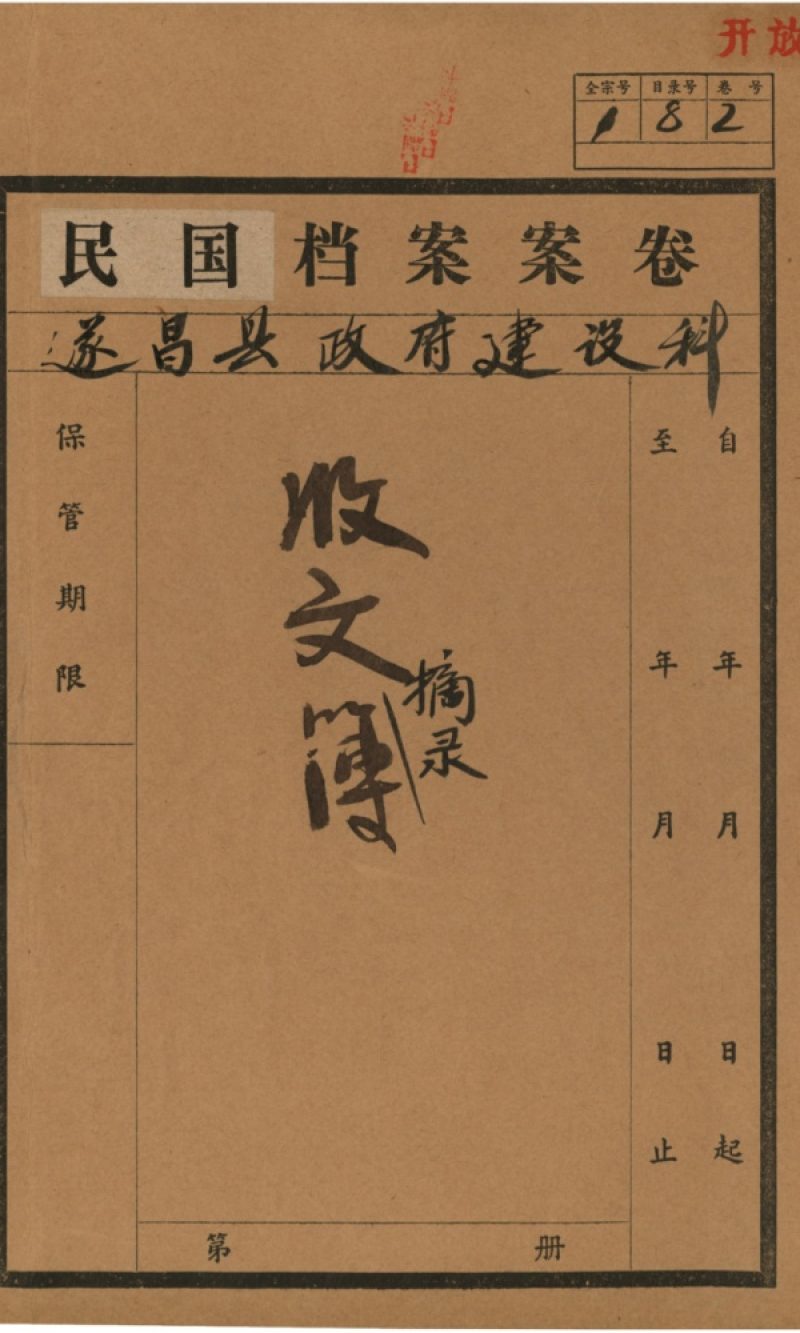 开放
全宗号 目录号 卷 号
1 8 2
民国档案案卷
遂昌县政府建设科
自 年 月 日起
至 年 月 日止
收文簿
摘录
保管期限
第 册